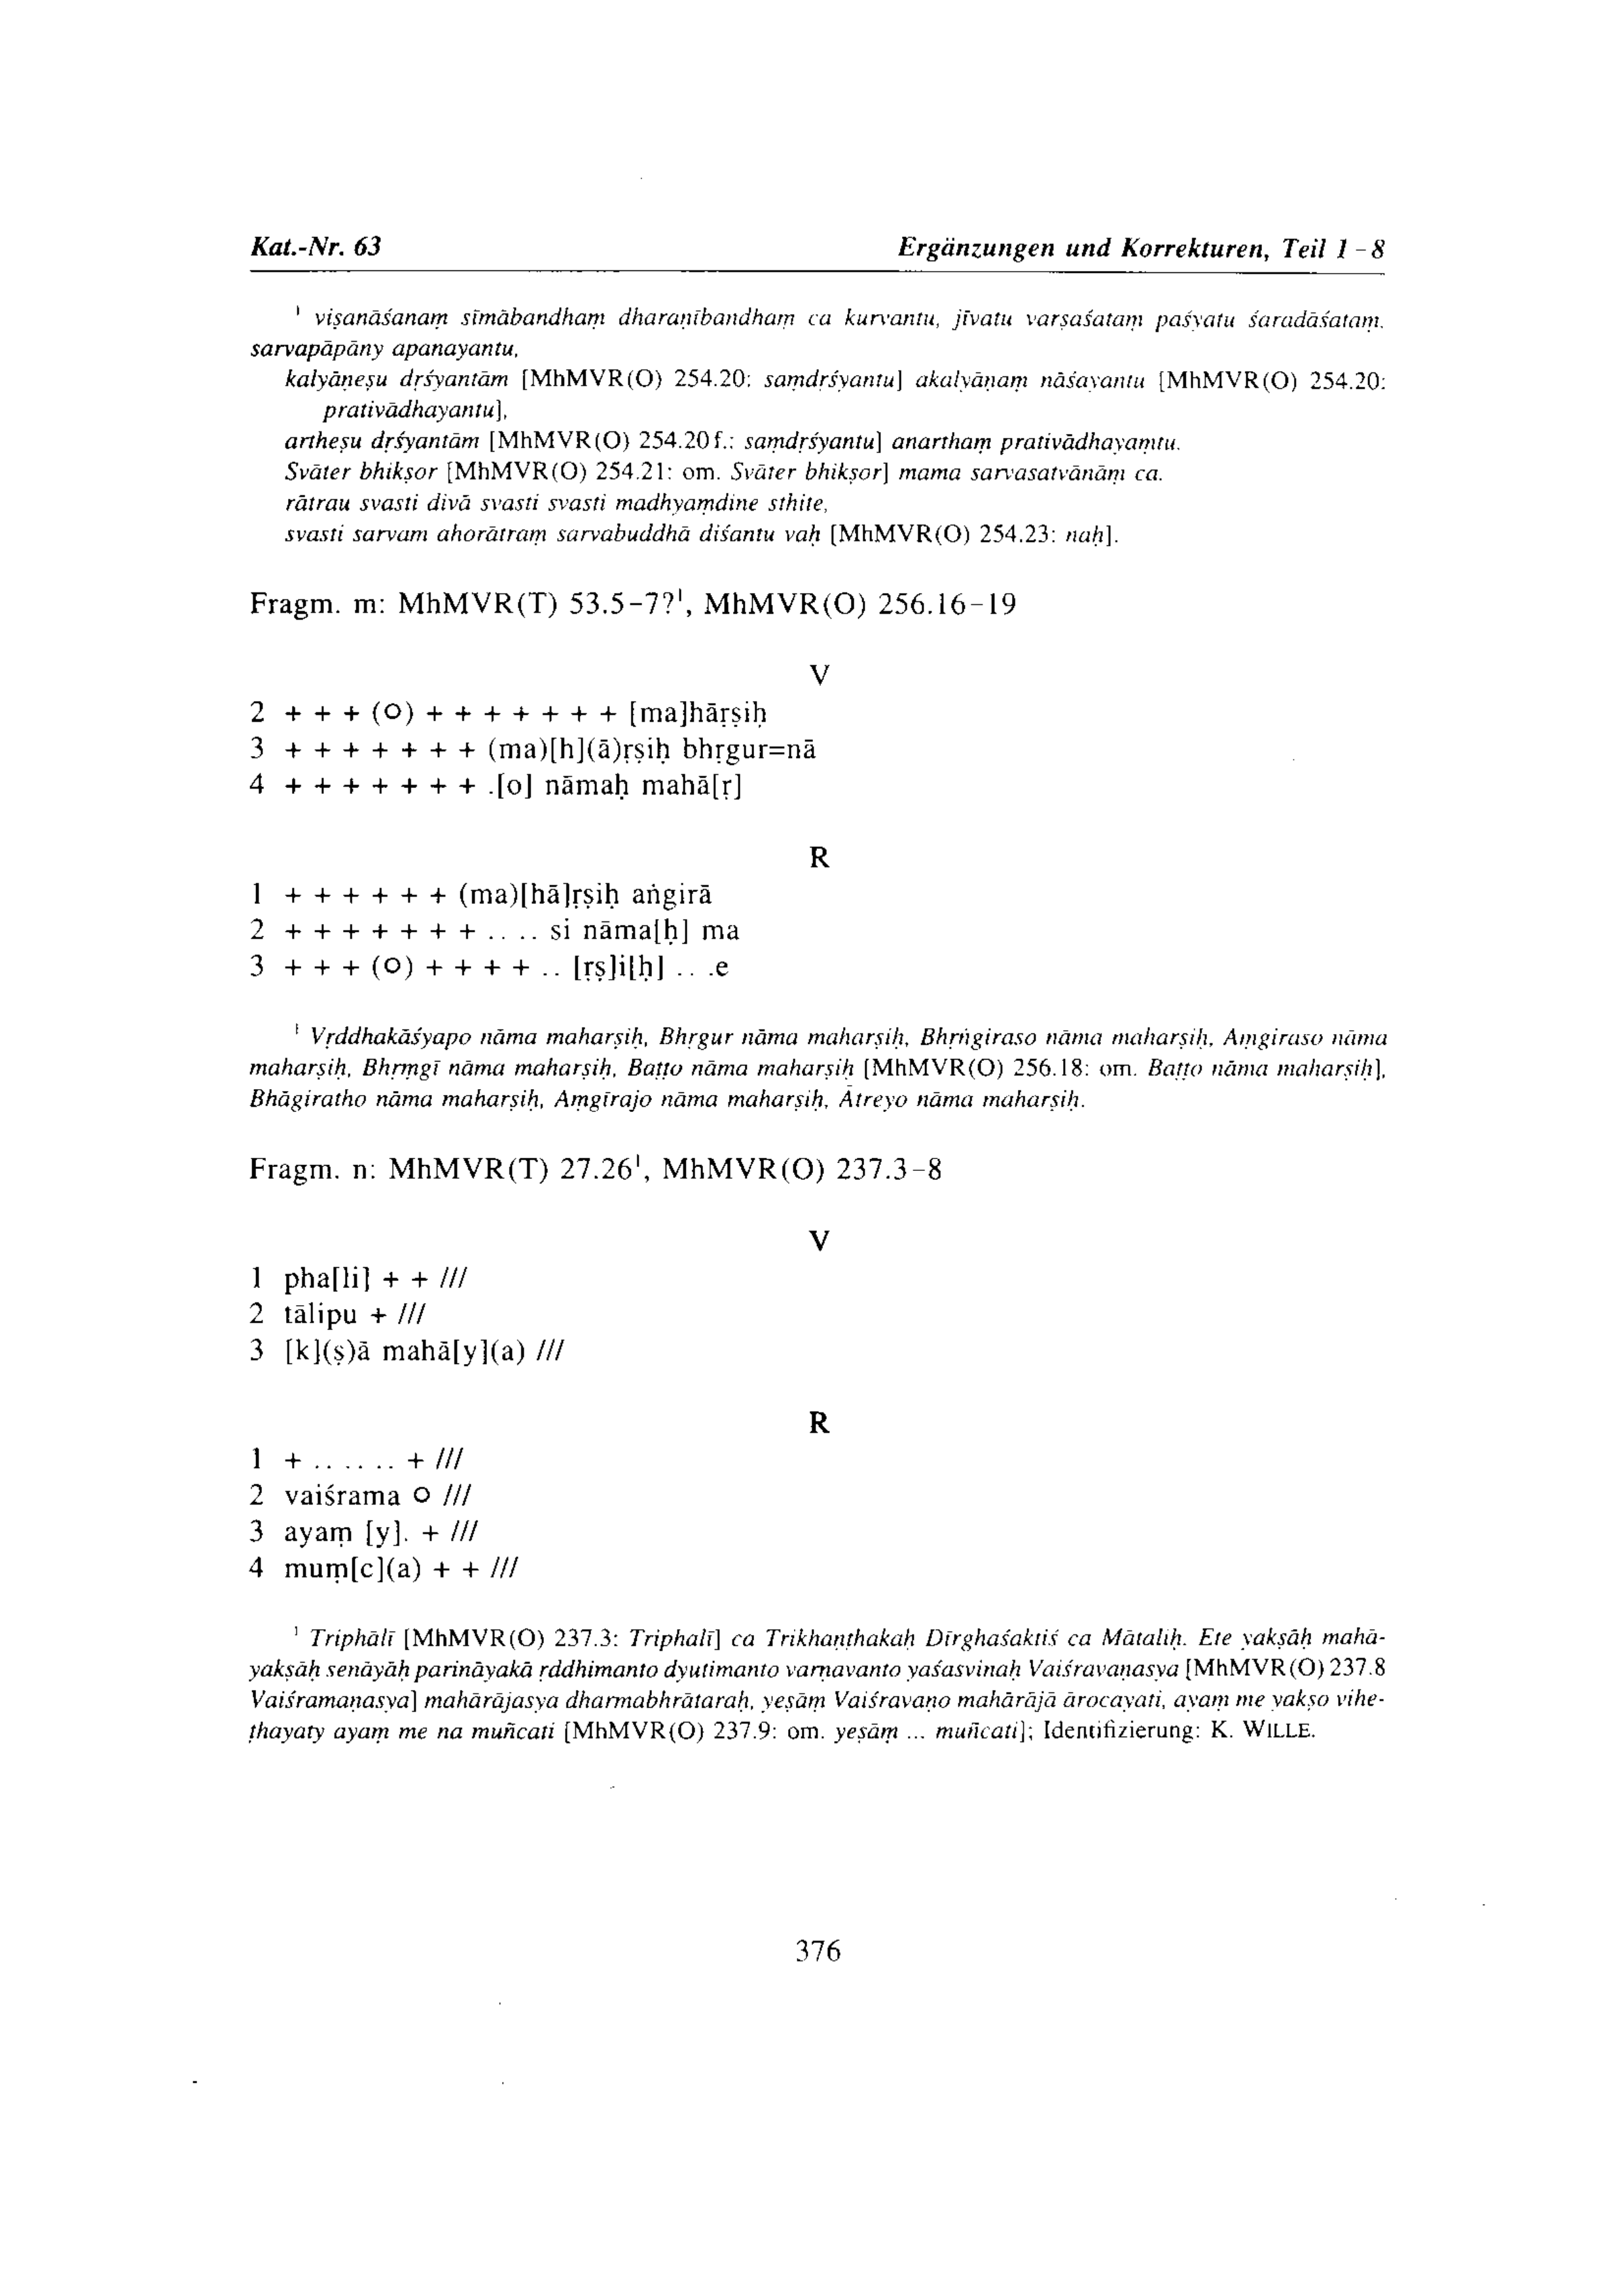 Kat.-Nr. 63 Ergänzungen und Korrekturen, Teil 1 – 8
¹ viṣanāśanaṃ sīmābandhaṃ dharaṇībandhaṃ ca kurvantu, jīvatu varṣaśataṃ paśyatu śaradāśataṃ.
sarvapāpāny apanayantu,
kalyāṇeṣu dṛśyantām [MhMVR(O) 254.20: saṃdṛśyantu] akalyāṇaṃ nāśayantu [MhMVR(O) 254.20:
prativādhayantu],
artheṣu dṛśyantām [MhMVR(O) 254.20 f.: saṃdṛśyantu] anarthaṃ prativādhayaṃtu.
Svāter bhikṣor [MhMVR(O) 254.21: om. Svāter bhikṣor] mama sarvasatvānāṃ ca.
rātrau svasti divā svasti svasti madhyaṃdine sthite,
svasti sarvam ahorātraṃ sarvabuddhā diśantu vaḥ [MhMVR(O) 254.23: naḥ].
Fragm. m: MhMVR(T) 53.5–7?¹, MhMVR(O) 256.16–19
V
2 + + + (○) + + + + + + + [ma]hārṣiḥ
3 + + + + + + + (ma)[h](ā)rṣiḥ bhṛgur=nā
4 + + + + + + + .[o] nāmaḥ mahā[ṛ]
R
1 + + + + + + (ma)[hā]rṣiḥ aṅgirā
2 + + + + + + + .. .. si nāma[ḥ] ma
3 + + + (○) + + + + .. [rṣ]i[ḥ] .. .e
¹ Vṛddhakāśyapo nāma maharṣiḥ, Bhṛgur nāma maharṣiḥ, Bhṛṅgiraso nāma maharṣiḥ, Aṃgiraso nāma
maharṣiḥ, Bhṛṃgī nāma maharṣiḥ, Baṭṭo nāma maharṣiḥ [MhMVR(O) 256.18: om. Baṭṭo nāma maharṣiḥ],
Bhāgiratho nāma maharṣiḥ, Aṃgīrajo nāma maharṣiḥ, Ātreyo nāma maharṣiḥ.
Fragm. n: MhMVR(T) 27.26¹, MhMVR(O) 237.3–8
V
1 pha[li] + + ///
2 tālipu + ///
3 [k](ṣ)ā mahā[y](a) ///
R
1 + .. .. .. + ///
2 vaiśrama ○ ///
3 ayaṃ [y]. + ///
4 muṃ[c](a) + + ///
¹ Triphālī [MhMVR(O) 237.3: Triphalī] ca Trikhaṇṭhakaḥ Dīrghaśaktiś ca Mātaliḥ. Ete yakṣāḥ mahā-
yakṣāḥ senāyāḥ parināyakā ṛddhimanto dyutimanto varṇavanto yaśasvinaḥ Vaiśravaṇasya [MhMVR(O) 237.8
Vaiśramaṇasya] mahārājasya dharmabhrātaraḥ, yeṣāṃ Vaiśravaṇo mahārājā ārocayati, ayaṃ me yakṣo vihe-
ṭhayaty ayaṃ me na muñcati [MhMVR(O) 237.9: om. yeṣāṃ ... muñcati]; Identifizierung: K. WILLE.
376